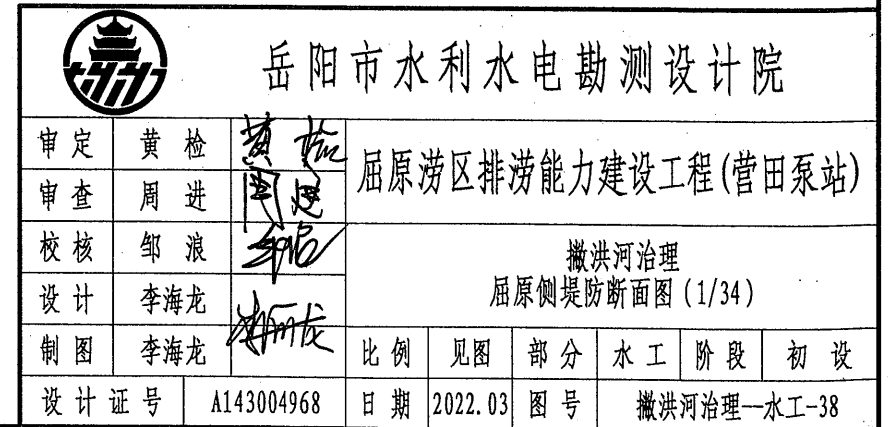 岳阳市水利水电勘测设计院
审定 黄检 黄检
屈原涝区排涝能力建设工程(营田泵站)
审查 周进 周进
校核 邹浪 邹浪
撇洪河治理
屈原侧堤防断面图(1/34)
设计 李海龙
制图 李海龙 李海龙
比例 见图 部分 水工 阶段 初设
设计证号 A143004968 日期 2022.03 图号 撇洪河治理—水工-38